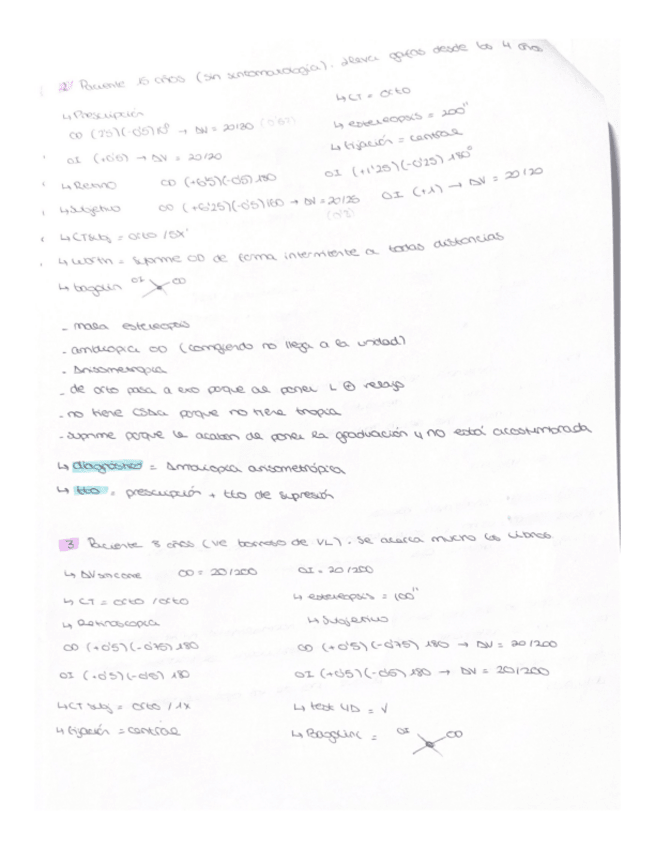 2 Paciente 15 años (sin sintomatología). Lleva gafas desde los 4 años
↳ Prescripción
↳ CT = orto
OD (...)(-0'5) → AV = 20/30
↳ estereopsis = 200''
OI (+0'5) → AV = 20/20
↳ Fijación = central
↳ Retino OD (+6'5)(-0'5) 180 OI (+1'25)(-0'25) 180°
↳ Subjetivo OD (+6'25)(-0'5) 160 → AV = 20/25 OI (+1) → AV = 20/20
(0'8)
↳ CTsubj = orto / 5X'
↳ Worth = suprime OD de forma intermitente a todas distancias
↳ bagolin OI OD
- mala estereopsis
- ambliopía OD (corrigiendo no llega a la unidad)
- Anisometropia
- de orto pasa a exo porque al poner L ⊕ relajo
- no tiene CSBA porque no tiene tropia
- suprime porque le acaban de poner la graduación y no está acostumbrada
↳ diagnóstico = Ambliopía anisometrópica
↳ tto = prescripción + tto de supresión
3 Paciente 8 años (ve borroso de VL). Se acerca mucho los libros
↳ AVsincorr OD = 20/200 OI = 20/200
↳ CT = orto / orto ↳ estereopsis = 100''
↳ Retinoscopia ↳ Subjetivo
OD (+0'5)(-0'75) 180 OD (+0'5)(-0'75) 180 → AV = 20/200
OI (+0'5)(-0'5) 180 OI (+0'5)(-0'5) 180 → AV = 20/200
↳ CT subj = orto / 1X ↳ test 4D = V
↳ Fijación = central ↳ Bagolini = OI OD